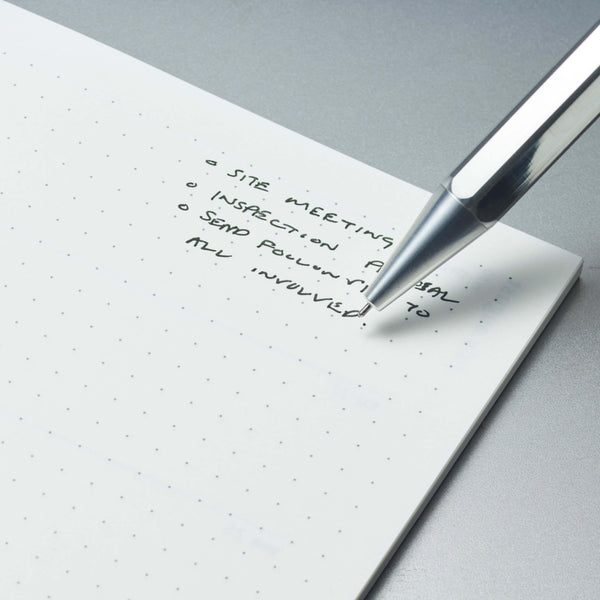 ○ SITE MEETING
○ INSPECTION
○ SEND FOLLOW TO
ALL INVOLVED.